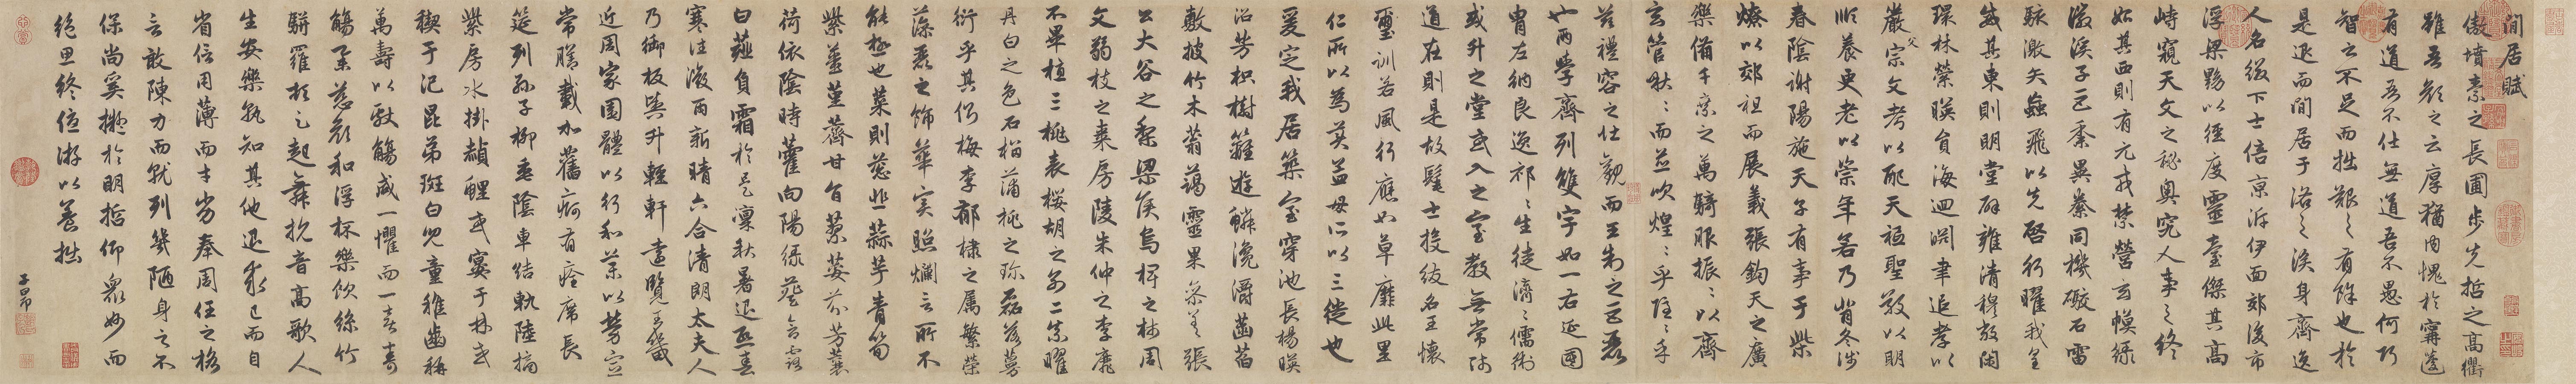 閒居賦
傲墳素之長圃步先哲之高衢
雖吾顏之云厚猶內愧於甯蘧
有道吾不仕無道吾不愚何巧
智之不足而拙艱之有餘也於
是退而閒居于洛之涘身齊逸
人名綴下士倍京泝伊面郊後市
浮梁黝以徑度靈臺傑其高
峙窺天文之秘奧究人事之終
始其西則有元戎禁營玄幙綠
徽溪子巨黍異絭同機礮石雷
駭激矢蝱飛以先啓行曜我皇
威其東則明堂辟雍清穆敞閑
環林縈暎負海迴淵聿追孝以
嚴父宗文考以配天祗聖敬以明
順養更老以崇年若乃背冬涉
春陰謝陽施天子有事于柴
燎以郊祖而展義張鈞天之廣
樂備千乘之萬騎服振〻以齊
玄管啾〻而並吹煌〻乎隱〻乎
茲禮容之壯觀而王制之巨麗
也兩學齊列雙宇如一右延國
胄左納良逸祁〻生徒濟〻儒術
或升之堂或入之室教無常師
道在則是故髦士投紱名王懷
璽訓若風行應如草靡此里
仁所以為美孟母所以三徙也
爰定我居築室穿池長楊暎
沼芳枳樹籬遊鱗瀺灂菡萏
敷披竹木蓊藹靈果參差張
公大谷之梨梁侯烏椑之柿周
文弱枝之棗房陵朱仲之李靡
不畢植三桃表櫻胡之別二柰曜
丹白之色石榴蒲桃之珍磊落蔓
衍乎其側梅李郁棣之屬繁榮
藻麗之飾華實照爛言所不
能極也菜則葱韭蒜芋青筍
紫薑堇薺甘旨蓼荾芬芳蘘
荷依陰時藿向陽綠葵含露
白薤負霜於是凜秋暑退熙春
寒往微雨新晴六合清朗太夫人
乃御板輿升輕軒遠覽王畿
近周家園體以行和藥以勞宣
常膳載加舊痾有痊席長
筵列孫子柳垂陰車結軌陸摘
紫房水掛赬鯉或宴于林或
禊于汜昆弟斑白兒童稚齒稱
萬壽以獻觴咸一懼而一喜壽
觴舉慈顏和浮杯樂飲絲竹
駢羅頓足起舞抗音高歌人
生安樂孰知其他退求己而自
省信用薄而才劣奉周任之格
言敢陳力而就列幾陋身之不
保尚奚擬於明哲仰眾妙而
絕思終優游以養拙
子昂